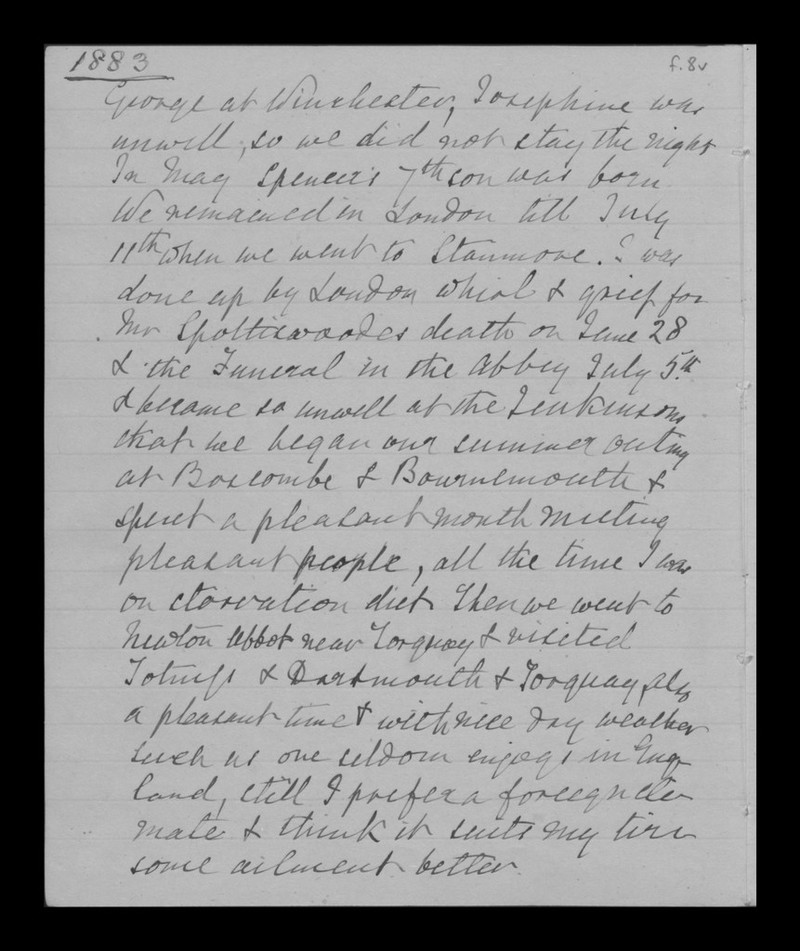 1883
f.8v
George at Winchester, Josephine was
unwell, so we did not stay the night
In May Spencer's 7th son was born
We remained in London till July
11th when we went to Stanmore. I was
done up by London whirl & grief for
Mr Spottiswoodes death on June 28
& the Funeral in the Abbey July 5th
& became so unwell at the Jenkinsons
that we began our summer outing
at Boscombe & Bournemouth &
spent a pleasant month meeting
pleasant people, all the time I was
on starvation diet. Then we went to
Newton Abbot near Torquay & visited
Totness & Dartmouth & Torquay, also
a pleasant time & with nice dry weather
such as one seldom enjoys in Eng-
land, still I prefer a foreign cli-
mate & think it suits my tire
some ailment better.